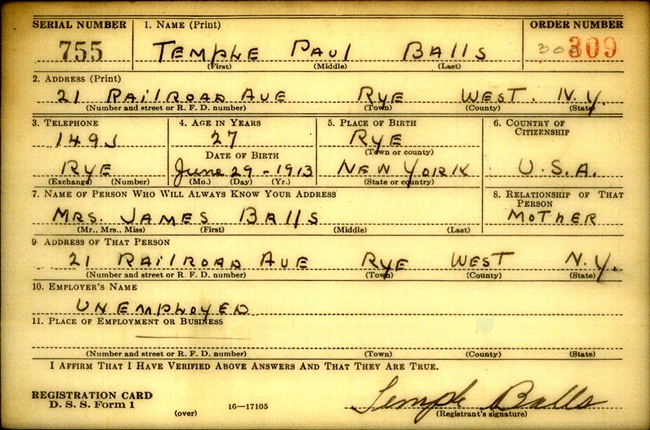 SERIAL NUMBER 1. NAME (Print) ORDER NUMBER
755 TEMPLE PAUL BALLS 309
(First) (Middle) (Last)
2. ADDRESS (Print)
21 RAILROAD AVE RYE WEST. N.Y.
(Number and street or R. F. D. number) (Town) (County) (State)
3. TELEPHONE 4. AGE IN YEARS 5. PLACE OF BIRTH 6. COUNTRY OF CITIZENSHIP
149J 27 RYE
DATE OF BIRTH (Town or county)
RYE June 29-1913 NEW YORK U.S.A.
(Exchange) (Number) (Mo.) (Day) (Yr.) (State or country)
7. NAME OF PERSON WHO WILL ALWAYS KNOW YOUR ADDRESS 8. RELATIONSHIP OF THAT PERSON
MRS. JAMES BALLS MOTHER
(Mr., Mrs., Miss) (First) (Middle) (Last)
9 ADDRESS OF THAT PERSON
21 RAILROAD AVE RYE WEST N.Y.
(Number and street or R. F. D. number) (Town) (County) (State)
10. EMPLOYER'S NAME
UNEMPLOYED
11. PLACE OF EMPLOYMENT OR BUSINESS
(Number and street or R. F. D. number) (Town) (County) (State)
I AFFIRM THAT I HAVE VERIFIED ABOVE ANSWERS AND THAT THEY ARE TRUE.
REGISTRATION CARD
D. S. S. Form 1 (over) 16—17105 Temple Balls
(Registrant's signature)